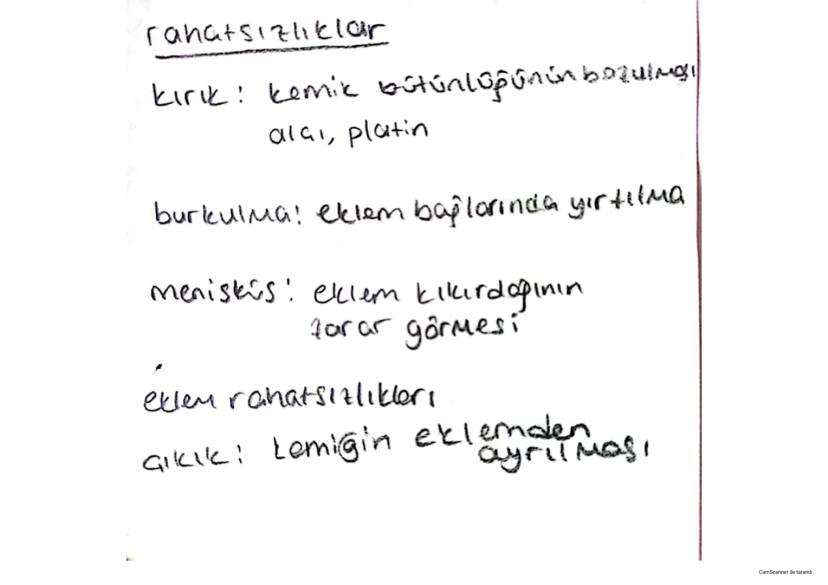 rahatsızlıklar
kırık: kemik bütünlüğünün bozulması
alçı, platin
burkulma: eklem bağlarında yırtılma
menisküs: eklem kıkırdağının
zarar görmesi
eklem rahatsızlıkları
çıkık: kemiğin eklemden
ayrılması
CamScanner ile tarandı